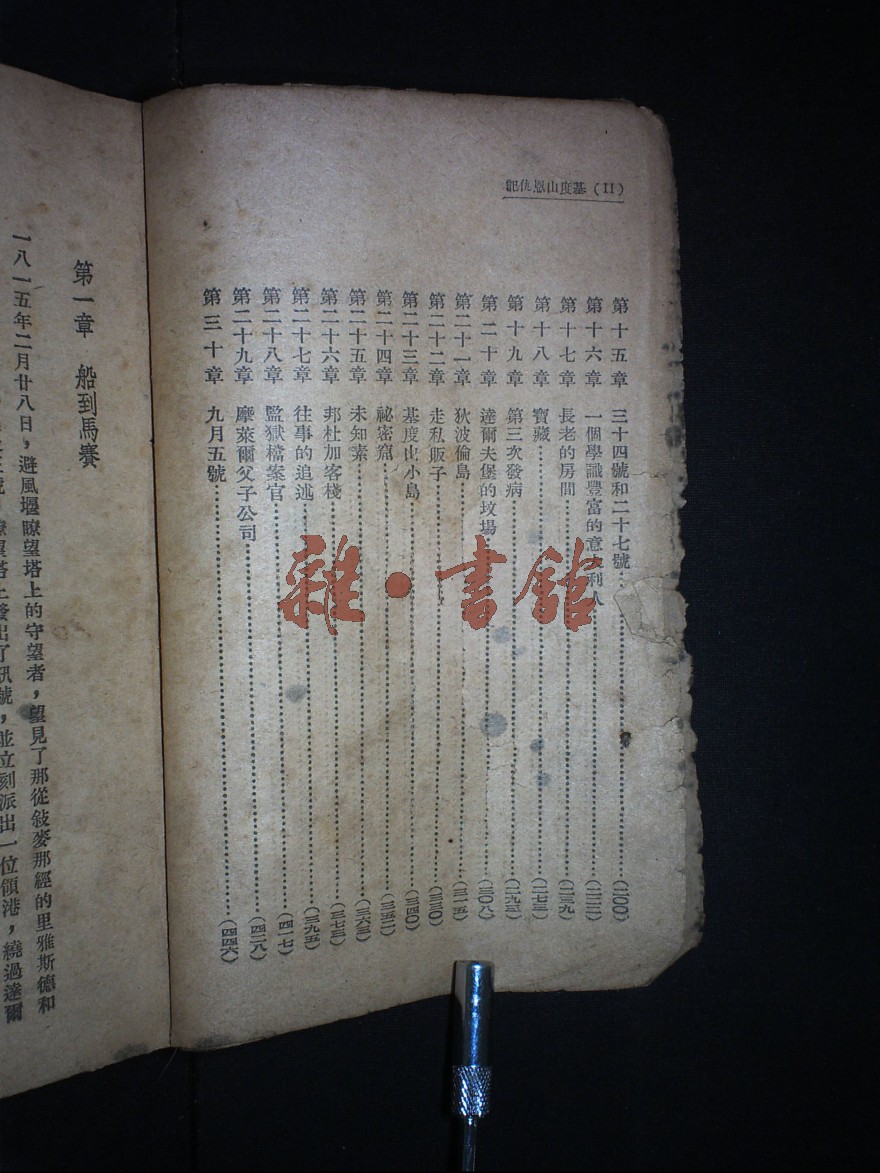 基度山恩仇記(II)
第十五章 三十四號和二十七號……(二〇〇)
第十六章 一個學識豐富的意大利人……(二二二)
第十七章 長老的房間……(二三九)
第十八章 寶藏……(二七三)
第十九章 第三次發病……(二九三)
第二十章 達爾夫堡的坟場……(三〇八)
第二十一章 狄波倫島……(三一五)
第二十二章 走私販子……(三三〇)
第二十三章 基度山小島……(三四〇)
第二十四章 祕密窟……(三五二)
第二十五章 未知素……(三六三)
第二十六章 邦杜加客棧……(三七三)
第二十七章 往事的追述……(三九五)
第二十八章 監獄檔案官……(四一七)
第二十九章 摩萊爾父子公司……(四二八)
第三十章 九月五號……(四四六)
第一章 船到馬賽
一八一五年二月廿八日，避風堰瞭望塔上的守望者，望見了那從敍麥那經的里雅斯德和
瞭望塔上發出了訊號，並立刻派出一位領港，繞過達爾
雜·書館